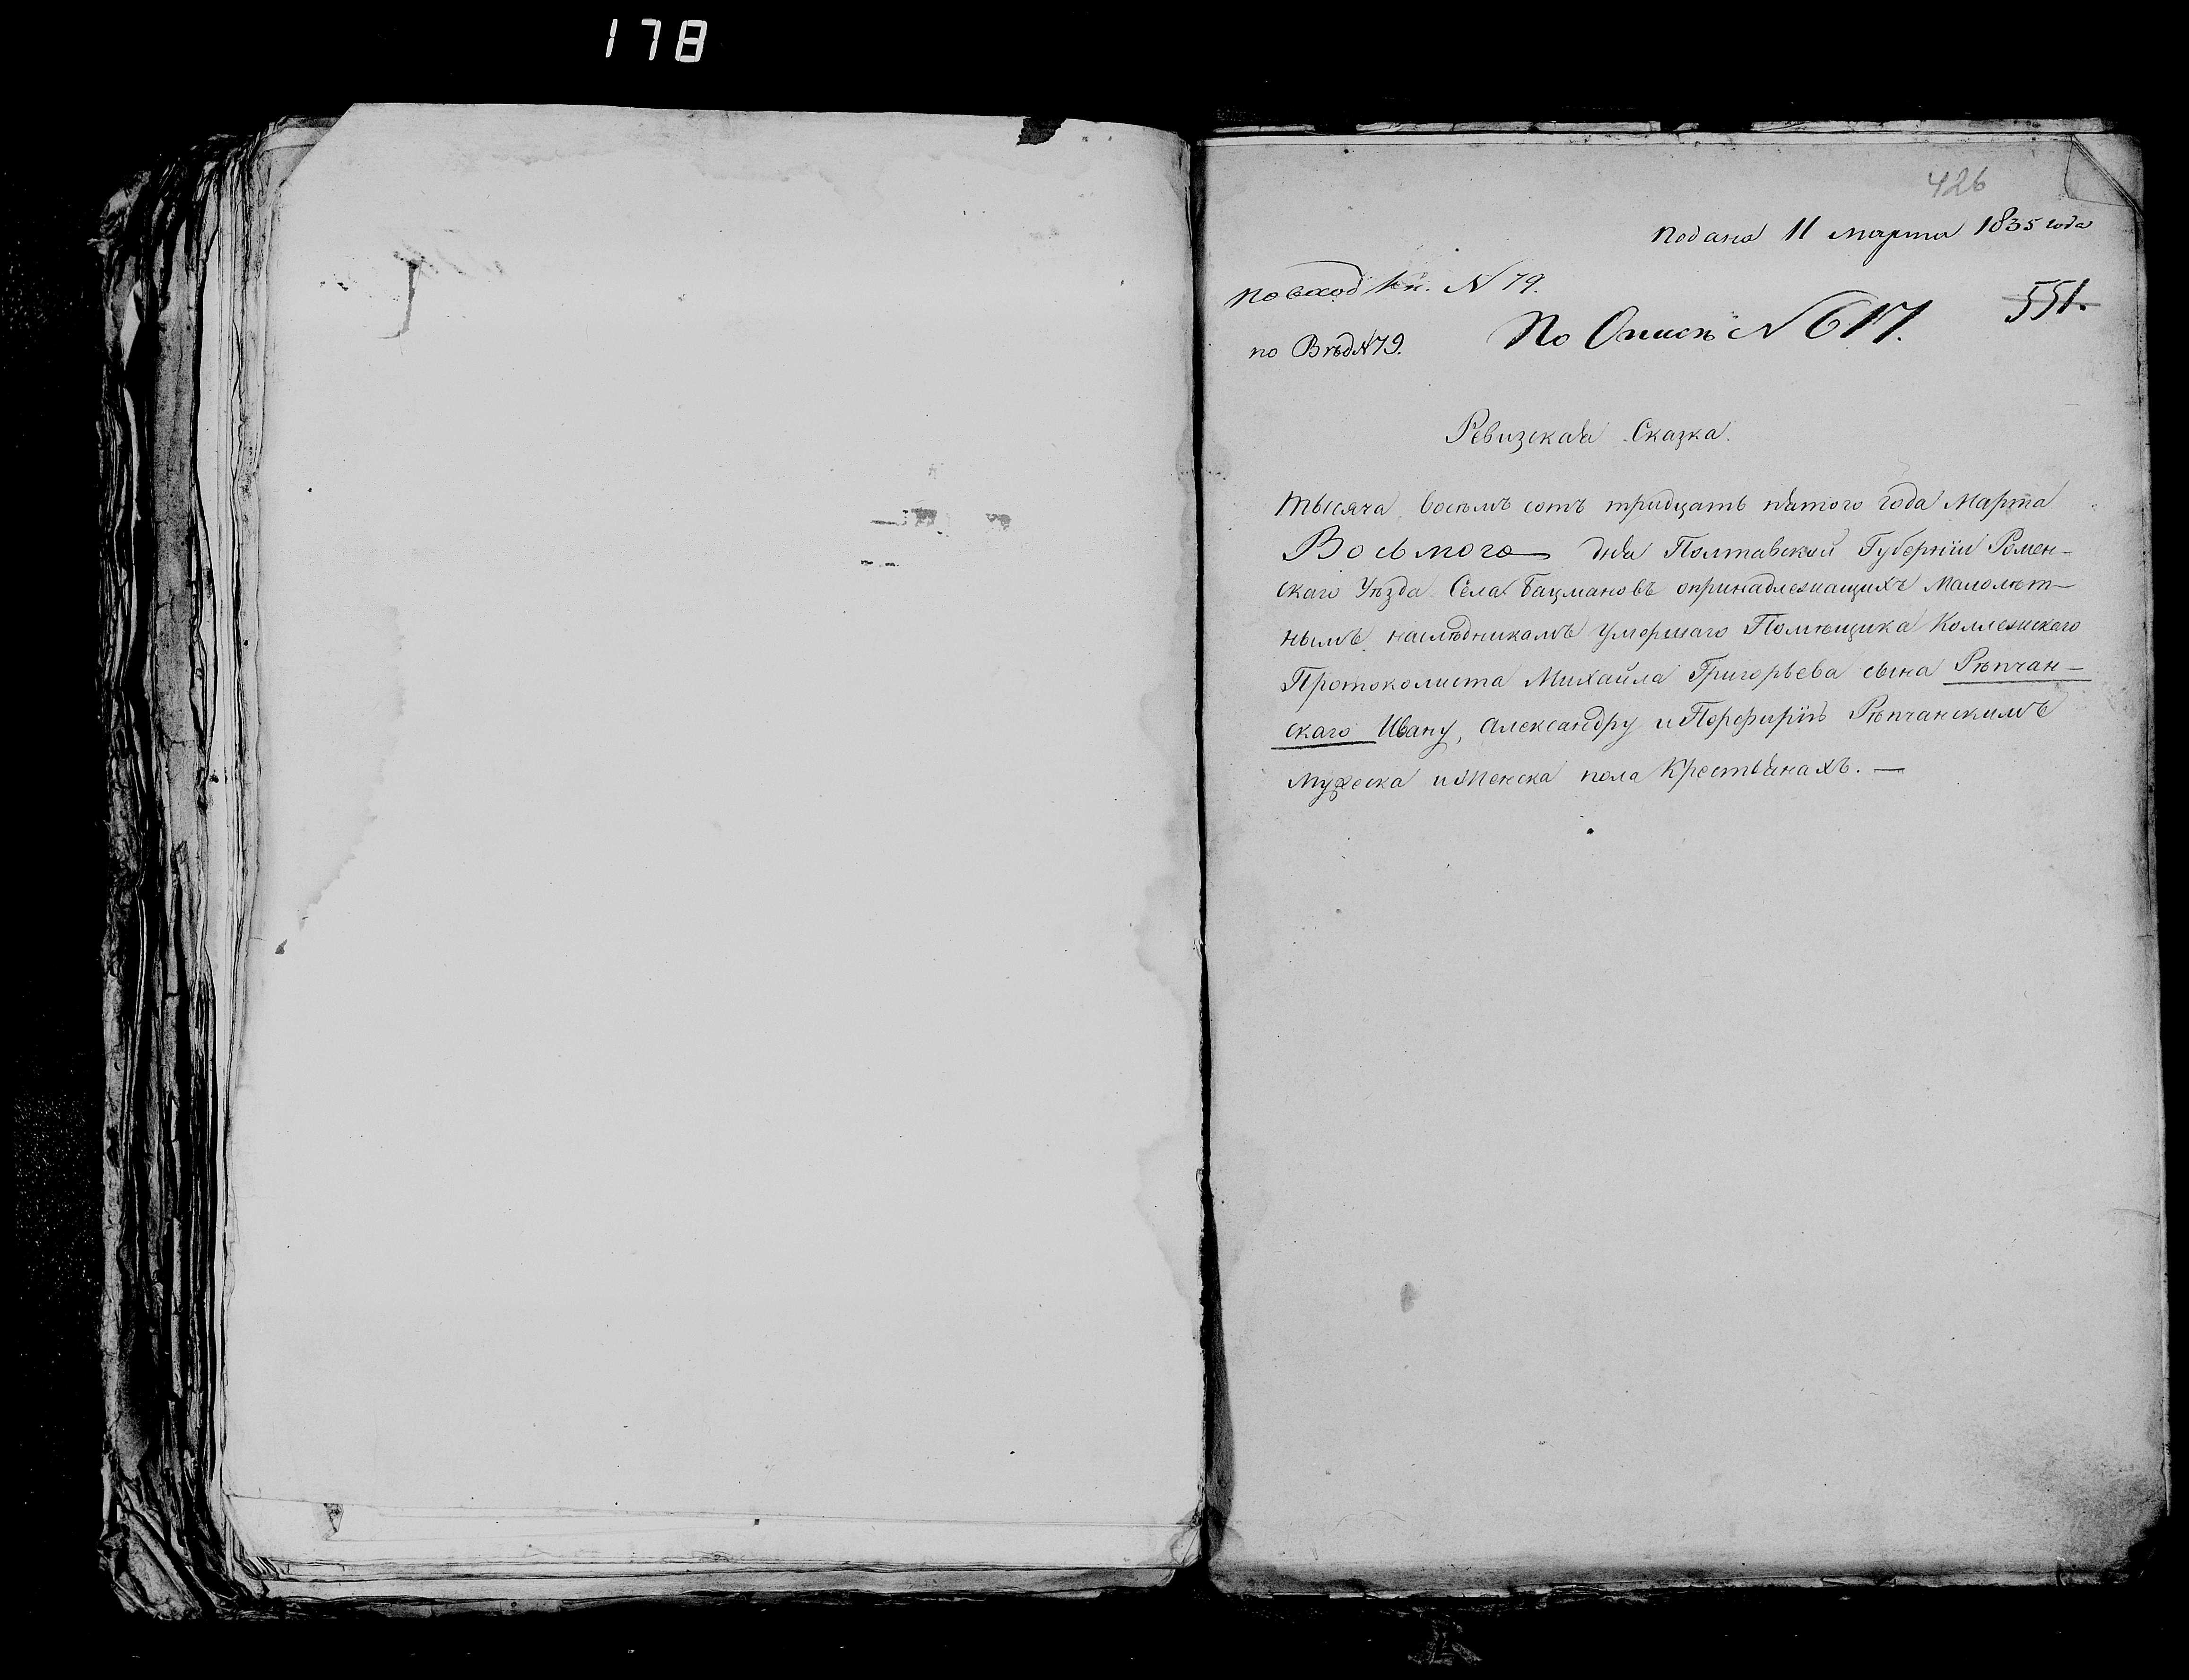 178
426
Подана 11 марта 1835 года
по вход Кн. N 79.
551.
По Описѣ N 617.
по Вѣд N 79.
Ревизская Сказка.
Тысяча восемъ сотъ тридцать пятого года Марта
Восьмого дня Полтавской Губернїи Ромен-
скаго Уѣзда Села Бацмановъ опринадлежащихъ малолѣт-
нымъ наслѣдникамъ умершаго Помѣщика Коллежскаго
Протоколиста Михайла Григорьева сына Рѣпчан-
скаго Ивану, Александру и Порфирїю Рѣпчанскимъ
мужеска и женска пола Крестьянахъ. —